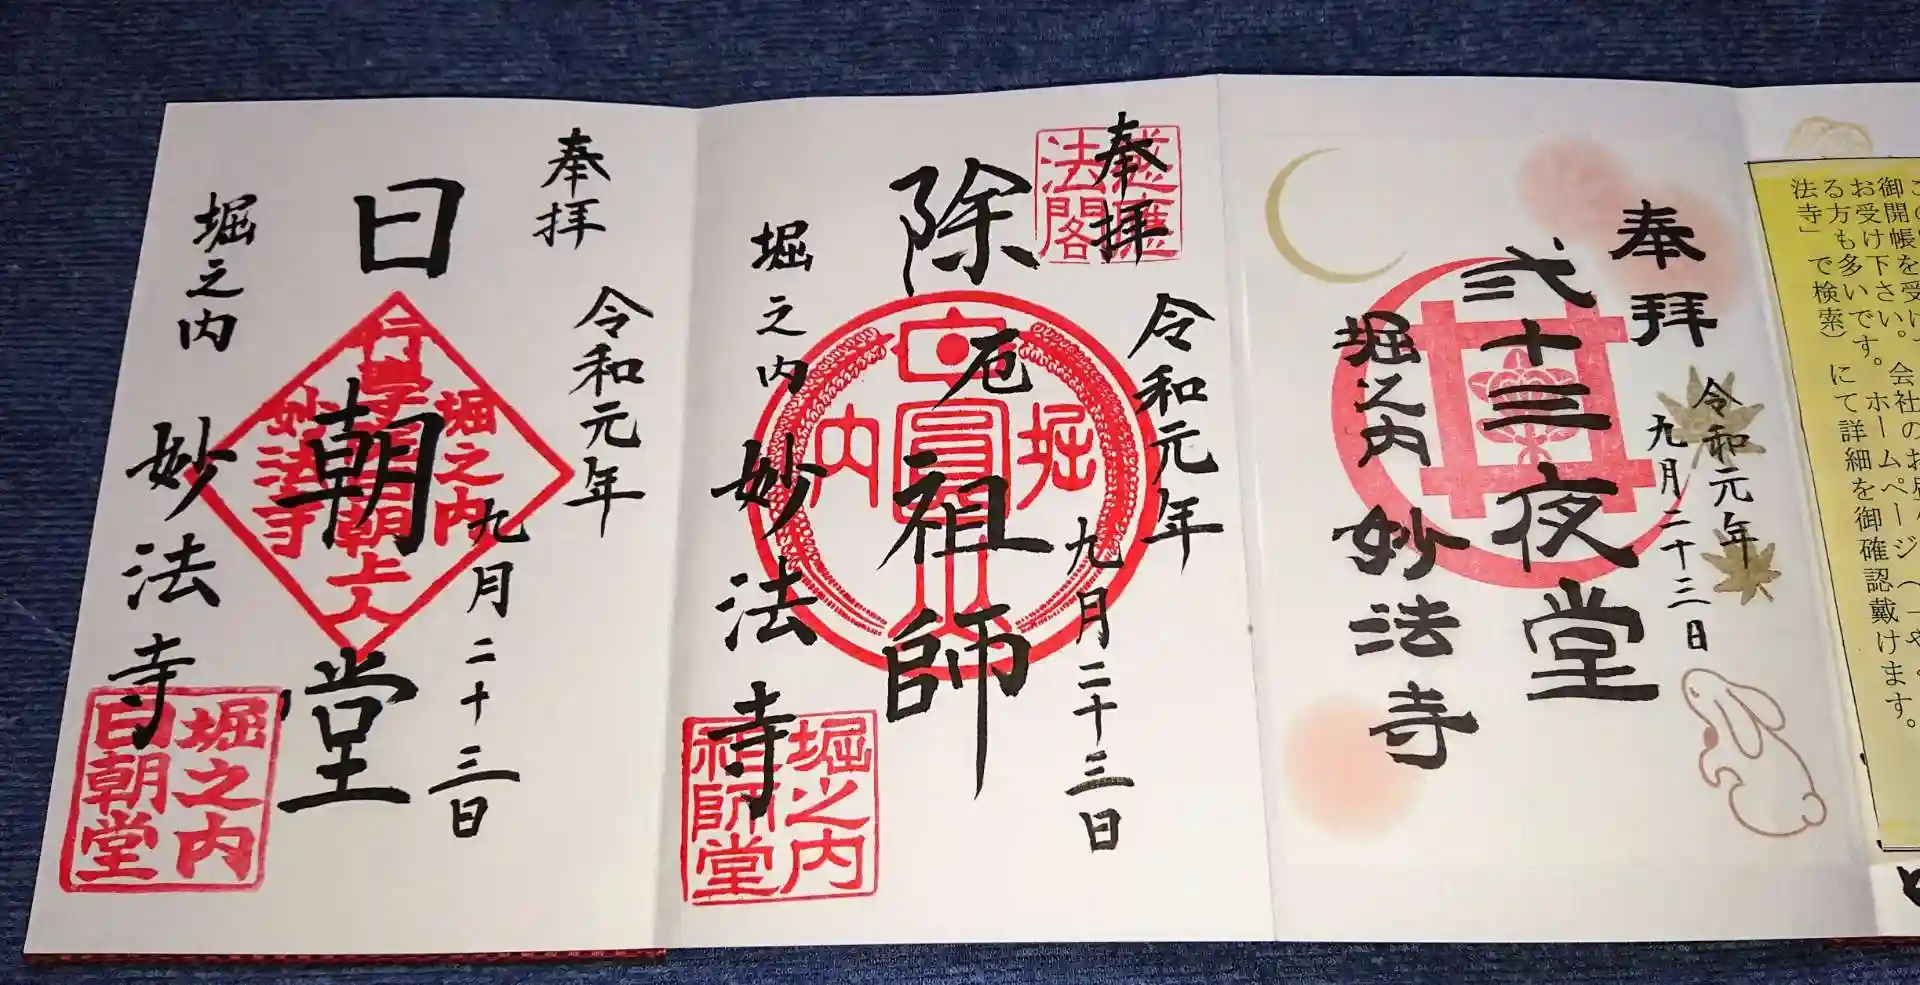 この
御開帳を受け
お受け下さい。会社のお
る方も多いです。ホームページへ
法寺」で検索)にて詳細を御確認戴けます。
奉拝
令和元年
九月二十三日
弐十三夜堂
堀之内
妙法寺
奉拝
法閣
令和元年
九月二十三日
除厄祖師
堀
内
堀之内
妙法寺
堀之内
祖師堂
奉拝
令和元年
九月二十三日
日朝堂
堀之内
妙法寺
堀之内
妙法寺
堀之内
日朝堂